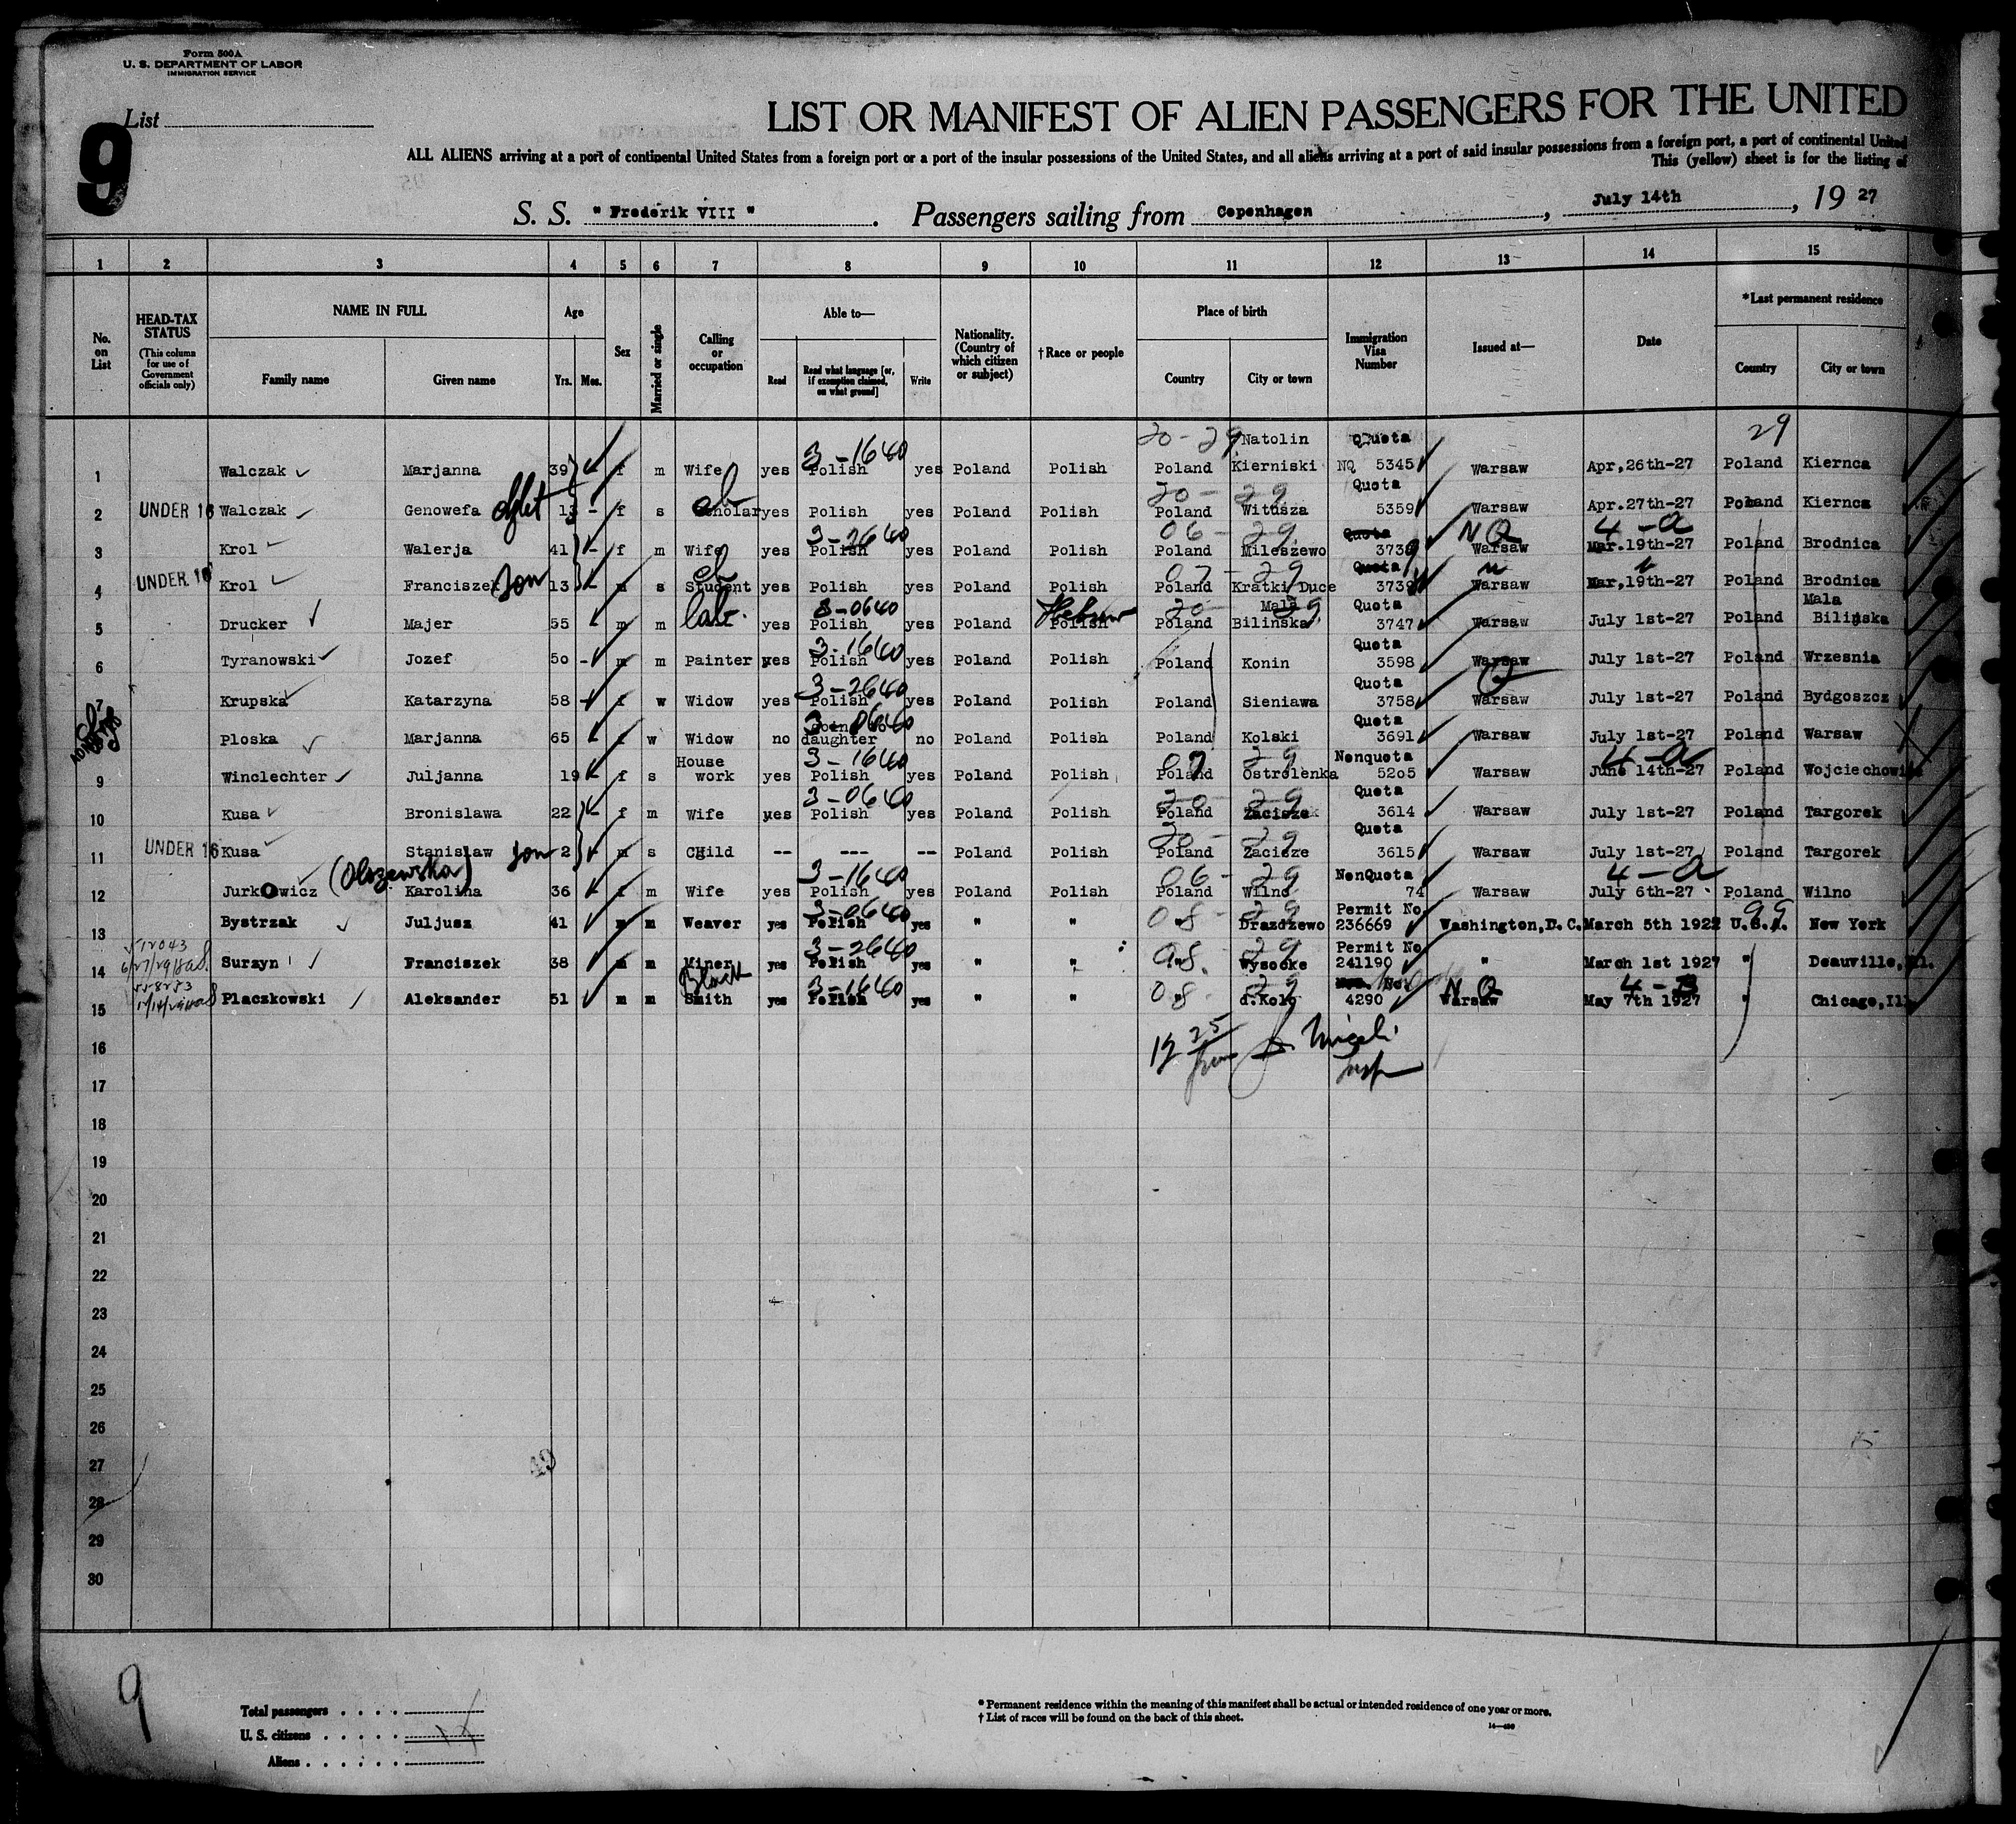 Form 500A
U. S. DEPARTMENT OF LABOR
IMMIGRATION SERVICE
List
9
LIST OR MANIFEST OF ALIEN PASSENGERS FOR THE UNITED
ALL ALIENS arriving at a port of continental United States from a foreign port or a port of the insular possessions of the United States, and all aliens arriving at a port of said insular possessions from a foreign port, a port of continental United
This (yellow) sheet is for the listing of
S. S. " Frederik VIII ". Passengers sailing from Copenhagen, July 14th, 19 27
1 2 3 4 5 6 7 8 9 10 11 12 13 14 15
No. on List
HEAD-TAX STATUS (This column for use of Government officials only)
NAME IN FULL
Family name Given name
Age Yrs. Mos.
Sex
Married or single
Calling or occupation
Able to—
Read Read what language [or, if exemption claimed, on what ground] Write
Nationality. (Country of which citizen or subject)
†Race or people
Place of birth
Country City or town
Immigration Visa Number
Issued at—
Date
*Last permanent residence
Country City or town
20-29 Natolin Quota 29
1 Walczak Marjanna 39 f m Wife yes 3-1640 Polish yes Poland Polish Poland Kierniski NQ 5345 Warsaw Apr,26th-27 Poland Kiernca
20-29 Quota
2 UNDER 16 Walczak Genowefa 13 - f s Scholar yes Polish yes Poland Polish Poland Witusza 5359 Warsaw Apr.27th-27 Poland Kiernca
3-2640 06-29 Quota NQ 4-a
3 Krol Walerja 41 - f m Wife yes Polish yes Poland Polish Poland Mileszewo Warsaw Mar.19th-27 Poland Brodnica
07-29 Quota
4 UNDER 16 Krol Franciszek son 13 - m s Student yes Polish yes Poland Polish Poland Kratki Duce 3739 Warsaw Mar,19th-27 Poland Brodnica
3-0640 Hebrew 20-29 Mala Quota Mala
5 Drucker Majer 55 m m lab. yes Polish yes Poland Polish Poland Bilinska 3747 Warsaw July 1st-27 Poland Bilinska
3-1640 Quota
6 Tyranowski Jozef 50 - m m Painter yes Polish yes Poland Polish Poland Konin 3598 Warsaw July 1st-27 Poland Wrzesnia
3-2640 Quota
7 Krupska Katarzyna 58 - f w Widow yes Polish yes Poland Polish Poland Sieniawa 3758 Warsaw July 1st-27 Poland Bydgoszcz
3-0640 going to Quota
Ploska Marjanna 65 f w Widow no daughter no Poland Polish Poland Kolski 3691 Warsaw July 1st-27 Poland Warsaw
House 3-1640 07 29 Nonquota 4-a
9 Winclechter Juljanna 19 f s work yes Polish yes Poland Polish Poland Ostrolenka 5205 Warsaw June 14th-27 Poland
3-0640 20-29 Quota
10 Kusa Bronislawa 22 - f m Wife yes Polish yes Poland Polish Poland Zacisze 3614 Warsaw July 1st-27 Poland Targorek
20-29 Quota
11 UNDER 16 Kusa Stanislaw son 2 m s Child -- --- -- Poland Polish Poland Zacisze 3615 Warsaw July 1st-27 Poland Targorek
(Olszewska) 3-1640 06-29 NonQuota 4-a
12 Jurkowicz Karolina 36 f m Wife yes Polish yes Poland Polish Poland Wilno 74 Warsaw July 6th-27 Poland Wilno
3-0640 08-29 Permit No 99
13 Bystrzak Juljusz 41 m m Weaver yes Polish yes " " Drazdzewo 236669 Washington,D.C. March 5th 1922 U.S.A. New York
3-2640 08-29 Permit No
14 Surzyn Franciszek 38 m m Miner yes Polish yes " " Wysocke 241190 " March 1st 1927 " Deauville,Ill.
Black 3-1640 08-29 NQ 4-B
15 Placzkowski Aleksander 51 m m Smith yes Polish yes " " d.Kolo 4290 Warsaw May 7th 1927 " Chicago,Ill
16
17
18
19
20
21
22
23
24
25
26
27
28
29
30
49
9
Total passengers
U. S. citizens
Aliens
* Permanent residence within the meaning of this manifest shall be actual or intended residence of one year or more.
† List of races will be found on the back of this sheet.